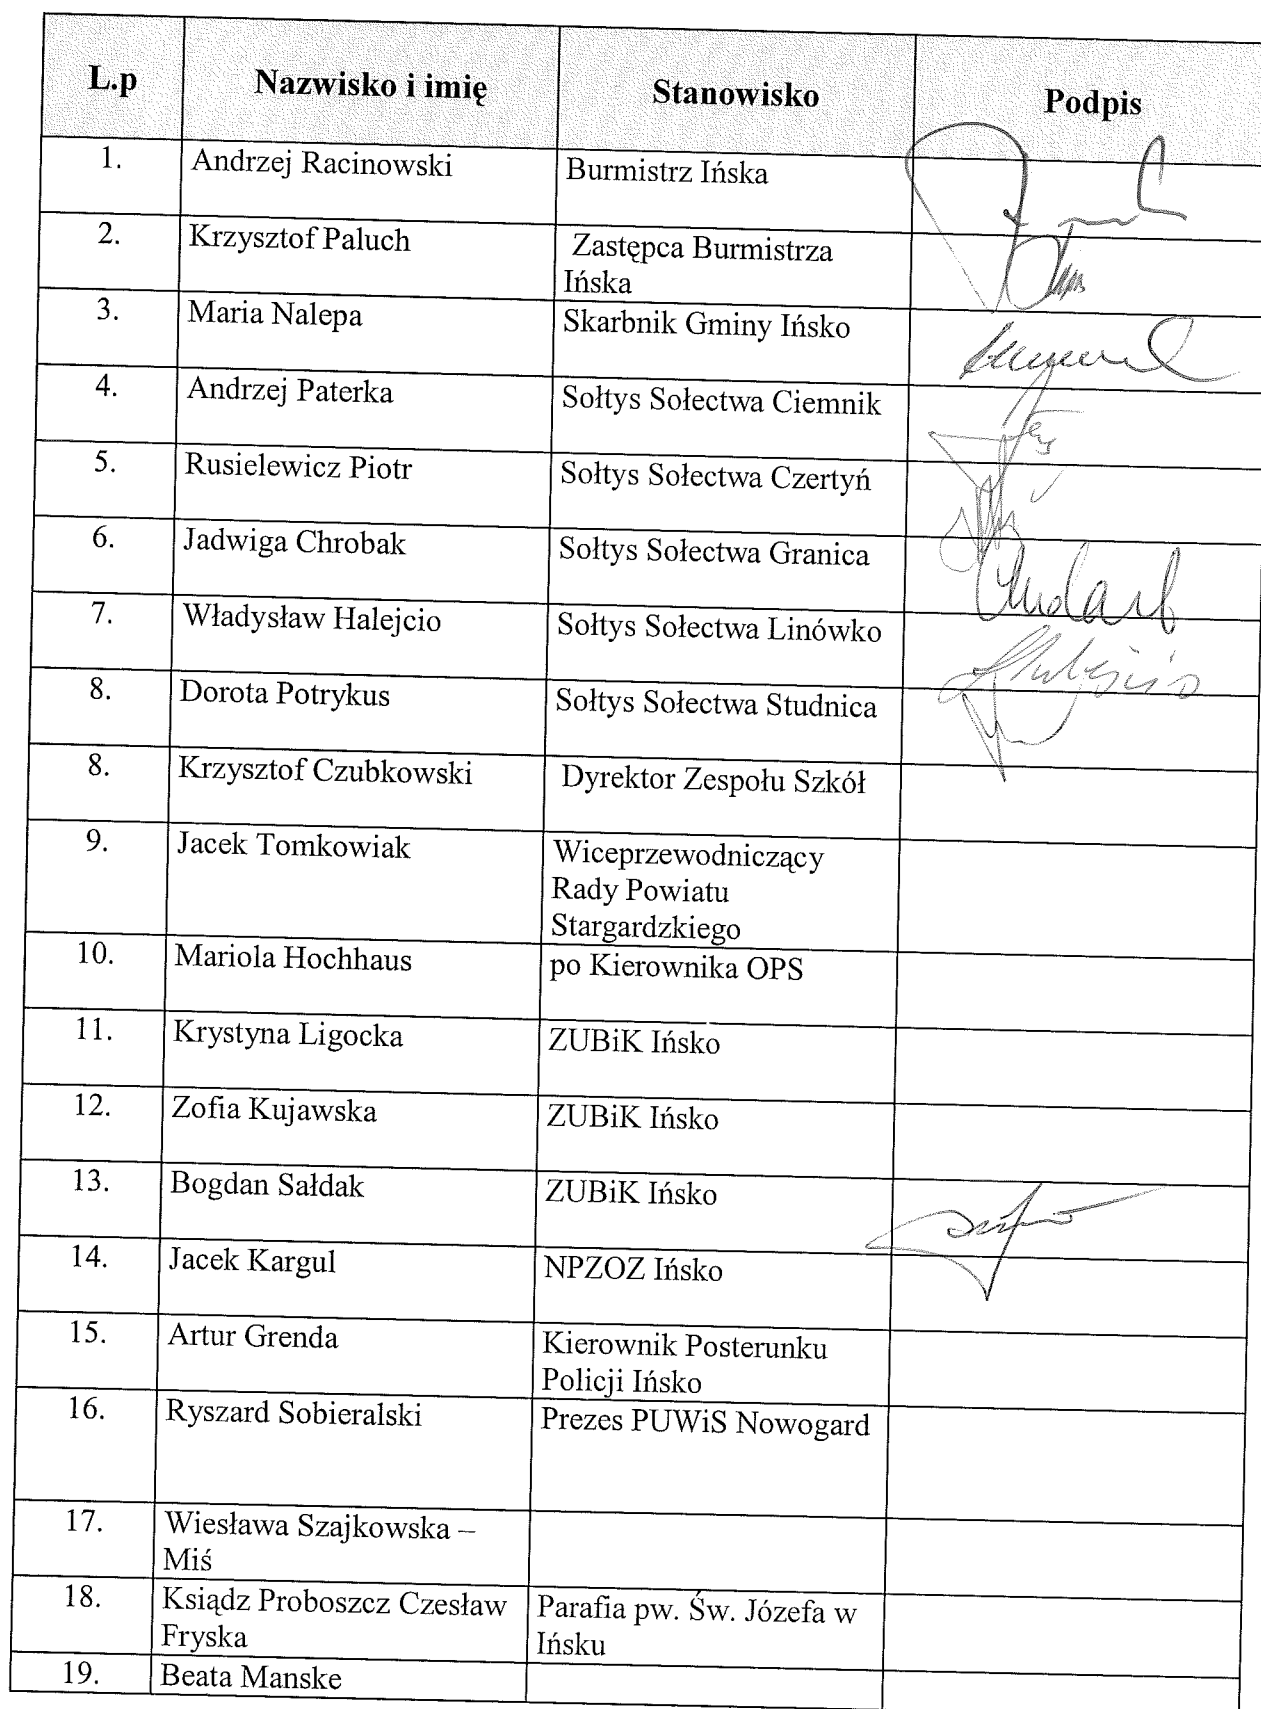 L.p Nazwisko i imię Stanowisko Podpis
1. Andrzej Racinowski Burmistrz Ińska
2. Krzysztof Paluch Zastępca Burmistrza
Ińska
3. Maria Nalepa Skarbnik Gminy Ińsko
4. Andrzej Paterka Sołtys Sołectwa Ciemnik
5. Rusielewicz Piotr Sołtys Sołectwa Czertyń
6. Jadwiga Chrobak Sołtys Sołectwa Granica
7. Władysław Halejcio Sołtys Sołectwa Linówko
8. Dorota Potrykus Sołtys Sołectwa Studnica
8. Krzysztof Czubkowski Dyrektor Zespołu Szkół
9. Jacek Tomkowiak Wiceprzewodniczący
Rady Powiatu
Stargardzkiego
10. Mariola Hochhaus po Kierownika OPS
11. Krystyna Ligocka ZUBiK Ińsko
12. Zofia Kujawska ZUBiK Ińsko
13. Bogdan Sałdak ZUBiK Ińsko
14. Jacek Kargul NPZOZ Ińsko
15. Artur Grenda Kierownik Posterunku
Policji Ińsko
16. Ryszard Sobieralski Prezes PUWiS Nowogard
17. Wiesława Szajkowska –
Miś
18. Ksiądz Proboszcz Czesław Parafia pw. Św. Józefa w
Fryska Ińsku
19. Beata Manske